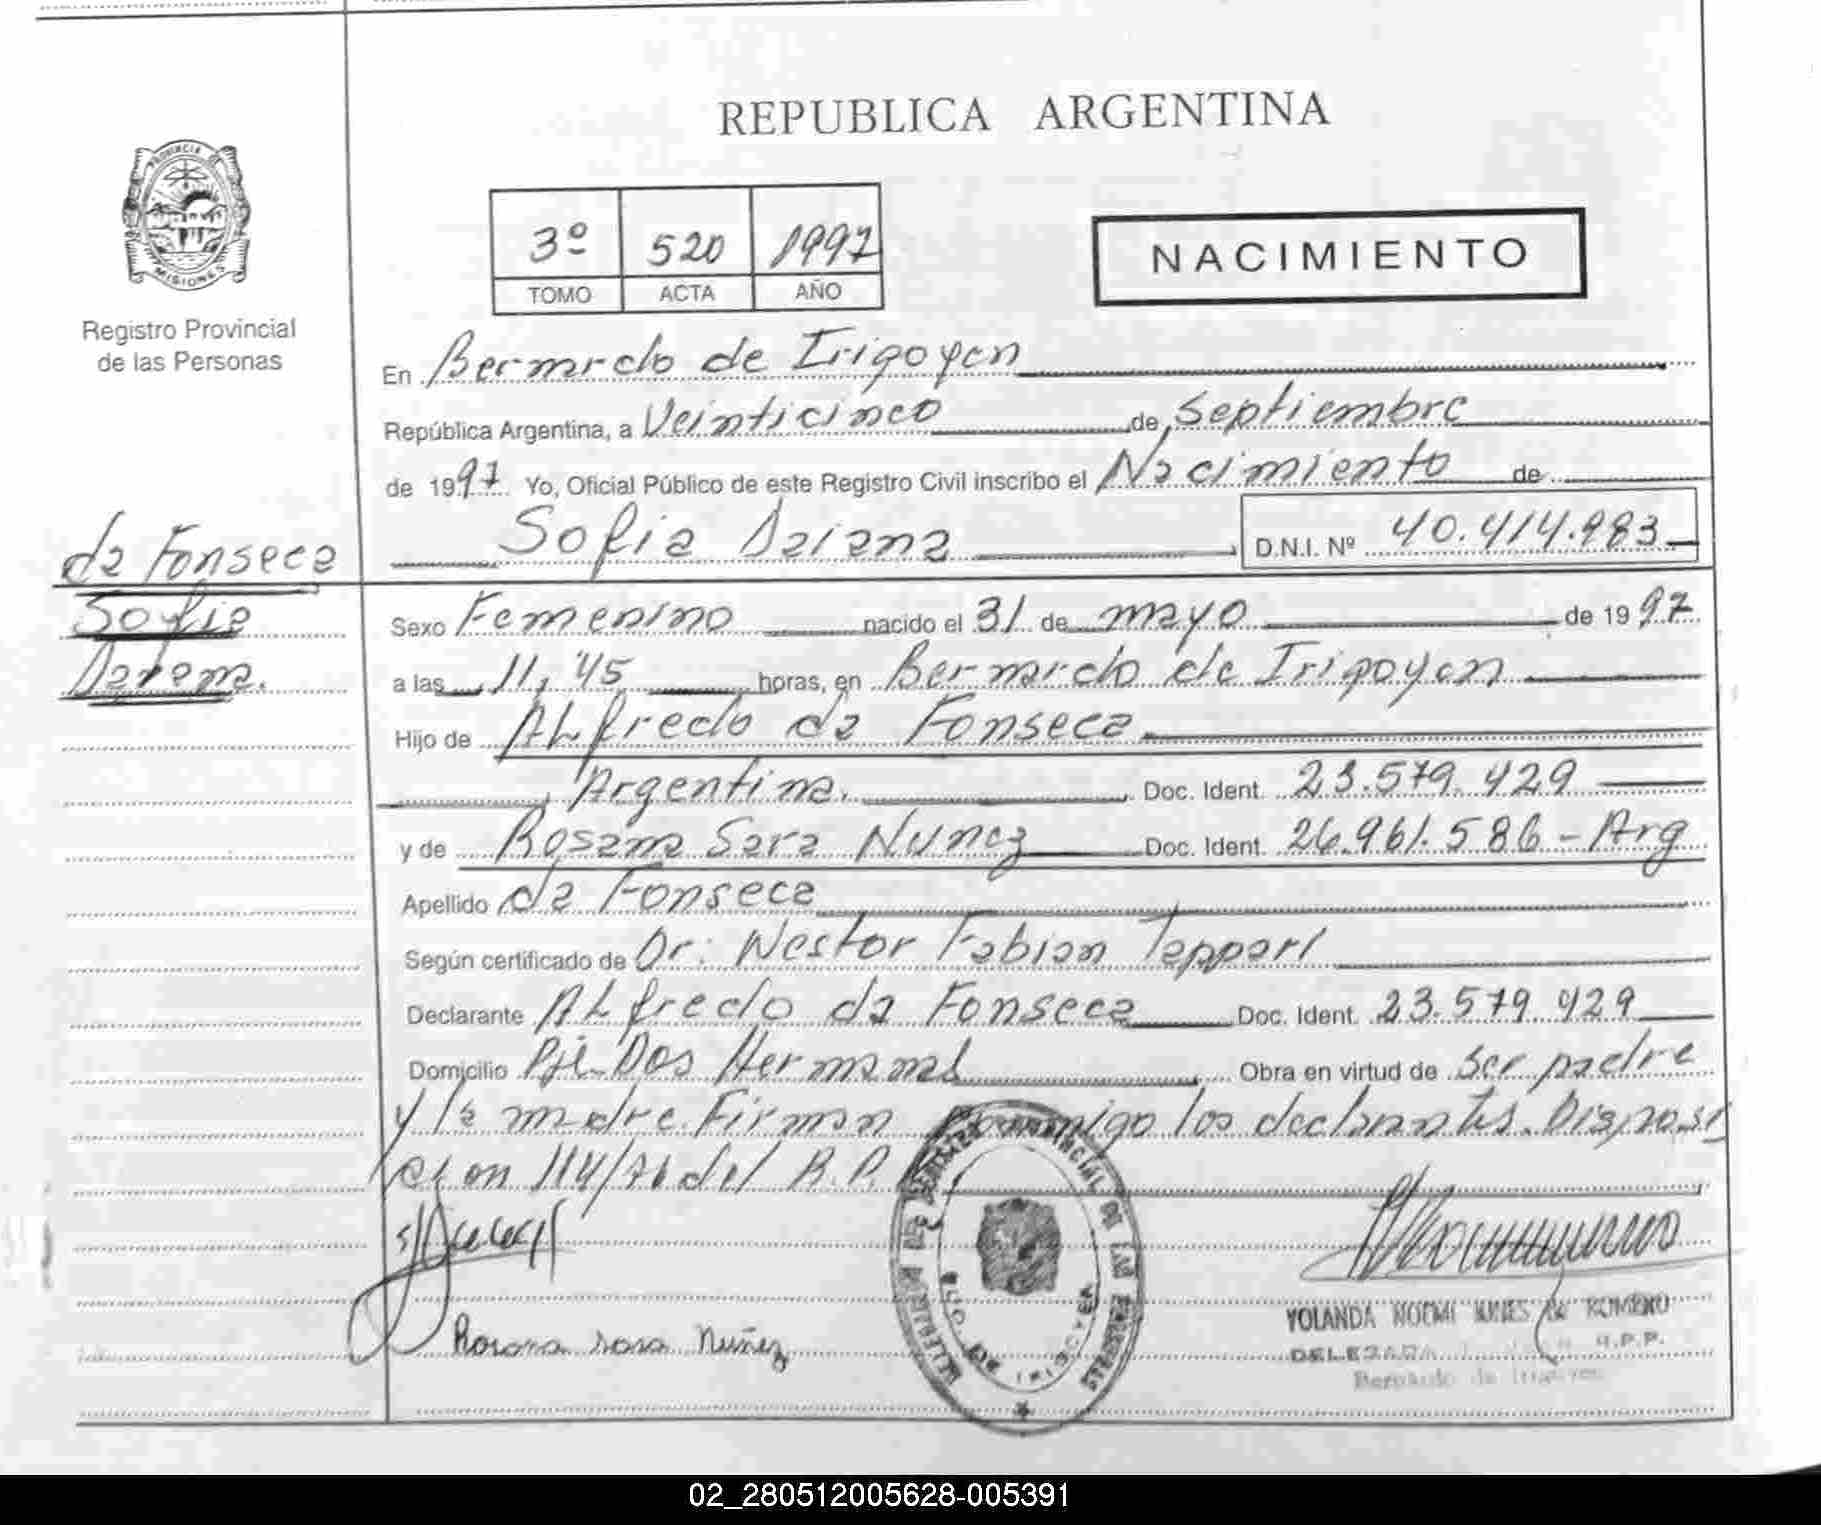 REPUBLICA ARGENTINA
PROVINCIA DE
MISIONES
Registro Provincial
de las Personas
3º 520 1997
TOMO ACTA AÑO
NACIMIENTO
En Bernardo de Irigoyen
República Argentina, a Veinticinco de Septiembre
de 1997 Yo, Oficial Público de este Registro Civil inscribo el Nacimiento de
Sofia Daiana D.N.I. Nº 40.414.983
da Fonseca
Sofia
Daiana.
Sexo Femenino nacido el 31 de mayo de 1997
a las 11,45 horas, en Bernardo de Irigoyen
Hijo de ALfredo da Fonseca
Argentina. Doc. Ident. 23.579.429
y de Rosana Sara Nunez Doc. Ident. 26.961.586 - Arg
Apellido da Fonseca
Según certificado de Dr: Nestor Fabian
Declarante ALfredo da Fonseca Doc. Ident. 23.579 429
Domicilio Dos Hermanas Obra en virtud de ser padre
y la madre. Firman conmigo los declarantes. Disposi
cion 114/76 del R.P.
Rosana Sara Nuñez
YOLANDA NOEMI DE ROMERO
DELEGADA R.P.P.
Bernardo de Irigoyen
02_280512005628-005391